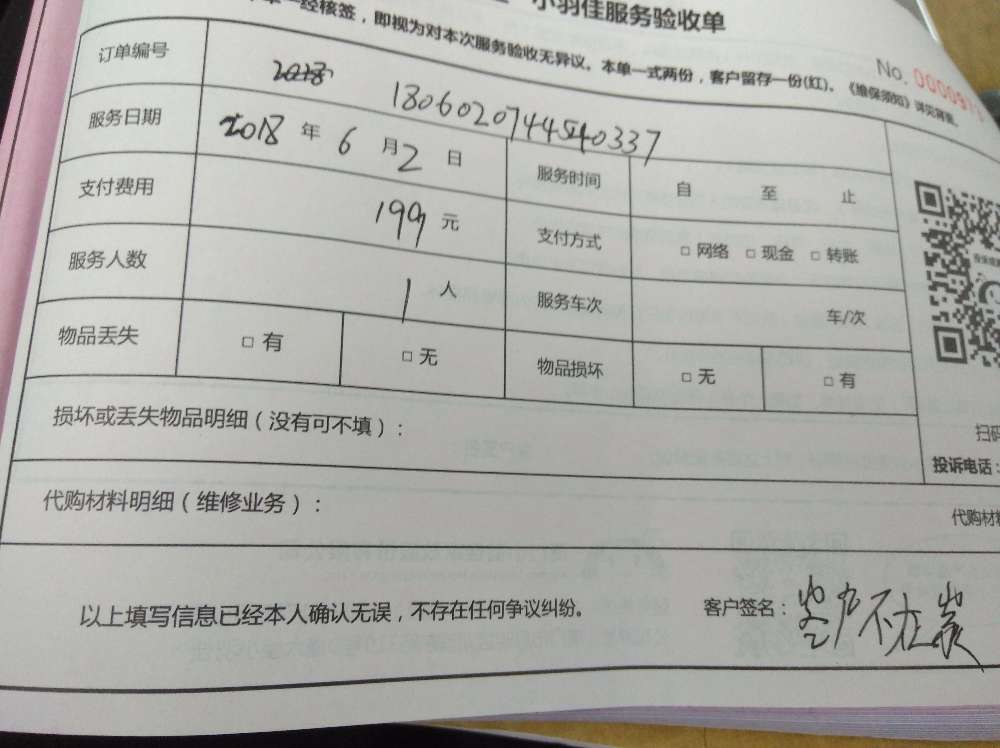 小羽佳服务验收单
单一经核签，即视为对本次服务验收无异议。本单一式两份，客户留存一份(红)。《维保须知》详见背面。
No. 0000091
订单编号 1806020744540337
服务日期 2018 年 6 月 2 日 服务时间 自 至 止
支付费用 199 元 支付方式 □ 网络 □ 现金 □ 转账
服务人数 1 人 服务车次 车/次
物品丢失 □ 有 □ 无 物品损坏 □ 无 □ 有
扫码
损坏或丢失物品明细（没有可不填）：
投诉电话：
代购材料明细（维修业务）：
代购材
以上填写信息已经本人确认无误，不存在任何争议纠纷。 客户签名：客户不在家